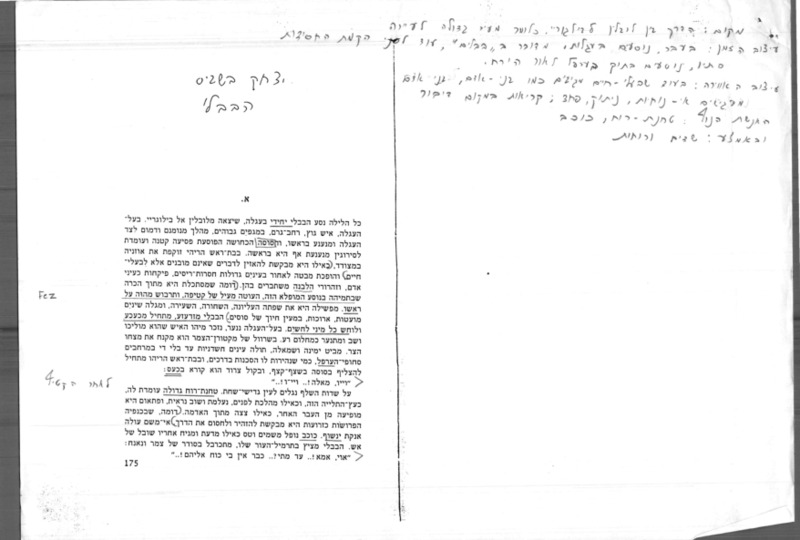 מקום: הדרך בין לובלין לבילגוריי, כלומר מעיר גדולה לעיירה
עיצוב הזמן: בעבר, נוסעים בעגלות, מדובר ב"בבלים", עוד לפני הקמת החסידות
סתיו, נוסעים בתוך בערפל לאור הירח.
עיצוב האווירה: בעוד שבעלי-חיים מגיבים כמו בני-אדם, בני-אדם
מרגישים אי-נוחות, ניתוק, פחד; קריאות במקום דיבור
האנשת הנוף: טחנת-רוח, כוכב
ובאמצע: שדים ורוחות
יצחק בשביס
הבבלי
א.
כל הלילה נסע הבבלי יחידי בעגלה, שיצאה מלובלין אל בילגוריי. בעל־
העגלה, איש גוץ, רחב־גרם, במגפים גבוהים, מהלך מנומנם ודמום לצד
העגלה ומנענע בראשו, והסוסה הכחושה הפוסעת פסיעה קטנה ועומדת
לסירוגין מנענעת אף היא בראשה. כבת־ראש הריהי זוקפת את אוזניה
במצודד, כאילו היא מבקשת להאזין לדברים שאינם מובנים אלא לבעלי־
חיים והופכת מבטה לאחור בעינים גדולות חסרות־ריסים, פיקחות כעיני
אדם, וזהרורי הלבנה משתברים בהן. דומה שמסתכלת היא מתוך הכרה
שבתמיהה בנוסע המופלא הזה, העוטה מעיל של קטיפה, ותרבוש מהוה על
ראשו. מפשילה היא את שפתה העליונה, השחורה, השעירה, ומגלה שינים
מועטות, ארוכות, במעין חיוך של סוסים. הבבלי מזדעזע, מתחיל מכעכע
ולוחש כל מיני לחשים. בעל־העגלה ננער, נזכר מיהו האיש שהוא מוליכו
ושב ומתנער במחלום רע. בשרוול של מקטורן־הצמר הוא מקנח את מצחו
הצר. מביט ימינה ושמאלה, תולה עינים חשדניות עד בלי די במרחבים
סחופי־הערפל, כמי שנהירות לו הסכנות בדרכים, ובבת־ראש הריהו מתחיל
להצליף בסוסה בשצף־קצף, ובקול צרוד הוא קורא בכעס:
"וייו, מאלה!.. ויי־ו!.."
על שדות השלף נגלים לעין גדישי־שחת. טחנת־רוח גדולה עומדת לה,
כעץ־התלייה הזה, וכאילו מהלכת לפנים, נעלמת ושוב נראית, ופתאום היא
מופיעה מן העבר האחר, כאילו צצה מתוך האדמה. דומה, שבכנפיה
הפרושות כזרועות היא מבקשת להזהיר ולחסום את הדרך. אי־משם עולה
אנקת ינשוף. כוכב נופל משמים וטס כאילו מדעת ומניח אחריו שובל של
אש. הבבלי מציץ בתרמיל־העור שלו, מתכרבל בסודר של צמר ונאנח:
"אוי, אמא!.. עד מתי?.. כבר אין בי כוח אליהם!.."
175
Fez